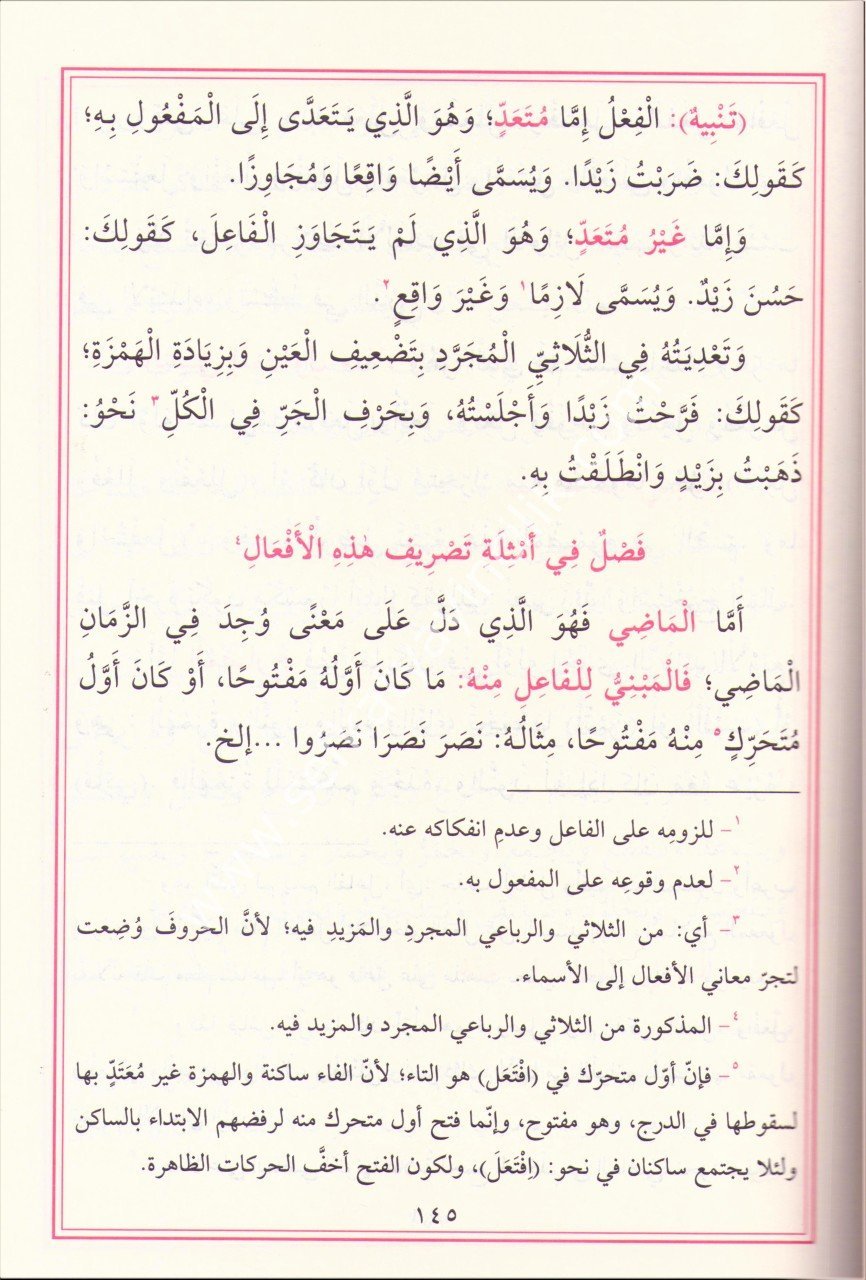 (تَنْبِيهٌ): الْفِعْلُ إِمَّا مُتَعَدٍّ؛ وَهُوَ الَّذِي يَتَعَدَّى إِلَى الْمَفْعُولِ بِهِ؛
كَقَولِكَ: ضَرَبْتُ زَيْدًا. وَيُسَمَّى أَيْضًا وَاقِعًا وَمُجَاوِزًا.
وَإِمَّا غَيْرُ مُتَعَدٍّ؛ وَهُوَ الَّذِي لَمْ يَتَجَاوَزِ الْفَاعِلَ، كَقَولِكَ:
حَسُنَ زَيْدٌ. وَيُسَمَّى لَازِمًا١ وَغَيْرَ وَاقِعٍ٢.
وَتَعْدِيَتُهُ فِي الثُّلَاثِيِّ الْمُجَرَّدِ بِتَضْعِيفِ الْعَيْنِ وَبِزِيَادَةِ الْهَمْزَةِ؛
كَقَولِكَ: فَرَّحْتُ زَيْدًا وَأَجْلَسْتُهُ، وَبِحَرْفِ الْجَرِّ فِي الْكُلِّ٣ نَحْوُ:
ذَهَبْتُ بِزَيْدٍ وَانْطَلَقْتُ بِهِ.
فَصْلٌ فِي أَمْثِلَةِ تَصْرِيفِ هٰذِهِ الْأَفْعَالِ٤
أَمَّا الْمَاضِي فَهُوَ الَّذِي دَلَّ عَلَى مَعْنًى وُجِدَ فِي الزَّمَانِ
الْمَاضِي؛ فَالْمَبْنِيُّ لِلْفَاعِلِ مِنْهُ: مَا كَانَ أَوَّلُهُ مَفْتُوحًا، أَوْ كَانَ أَوَّلُ
مُتَحَرِّكٍ٥ مِنْهُ مَفْتُوحًا، مِثَالُهُ: نَصَرَ نَصَرَا نَصَرُوا ...إلخ.
١- للزومِه على الفاعل وعدمِ انفكاكه عنه.
٢- لعدم وقوعِه على المفعول به.
٣- أي: من الثلاثي والرباعي المجردِ والمَزيدِ فيه؛ لأنَّ الحروفَ وُضِعت
لتجرّ معاني الأفعال إلى الأسماء.
٤- المذكورة من الثلاثي والرباعي المجرد والمزيد فيه.
٥- فإنّ أوّل متحرّك في (افْتَعَل) هو التاء؛ لأنّ الفاء ساكنة والهمزة غير مُعَتَدٍّ بها
لسقوطها في الدرج، وهو مفتوح، وإنّما فتح أول متحرك منه لرفضهم الابتداء بالساكن
ولئلا يجتمع ساكنان في نحو: (اِفْتَعَلَ)، ولكون الفتح أخفَّ الحركات الظاهرة.
١٤٥